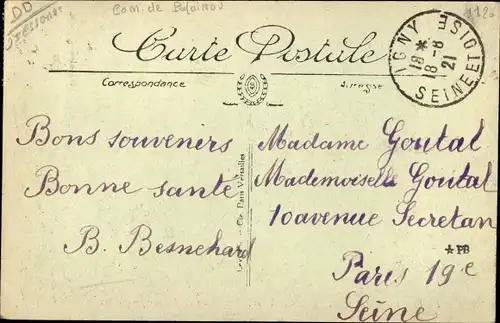 DD
Essonne
Com. de
Carte Postale
IGNY
18 *
18-8
21
SEINE ET OISE
Correspondance
Adresse
Bons souvenirs
Bonne santé
B. Besnehard
Madame Goutal
Mademoiselle Goutal
10 avenue Secretan
*PB
Paris 19e
Seine
Paris Versailles